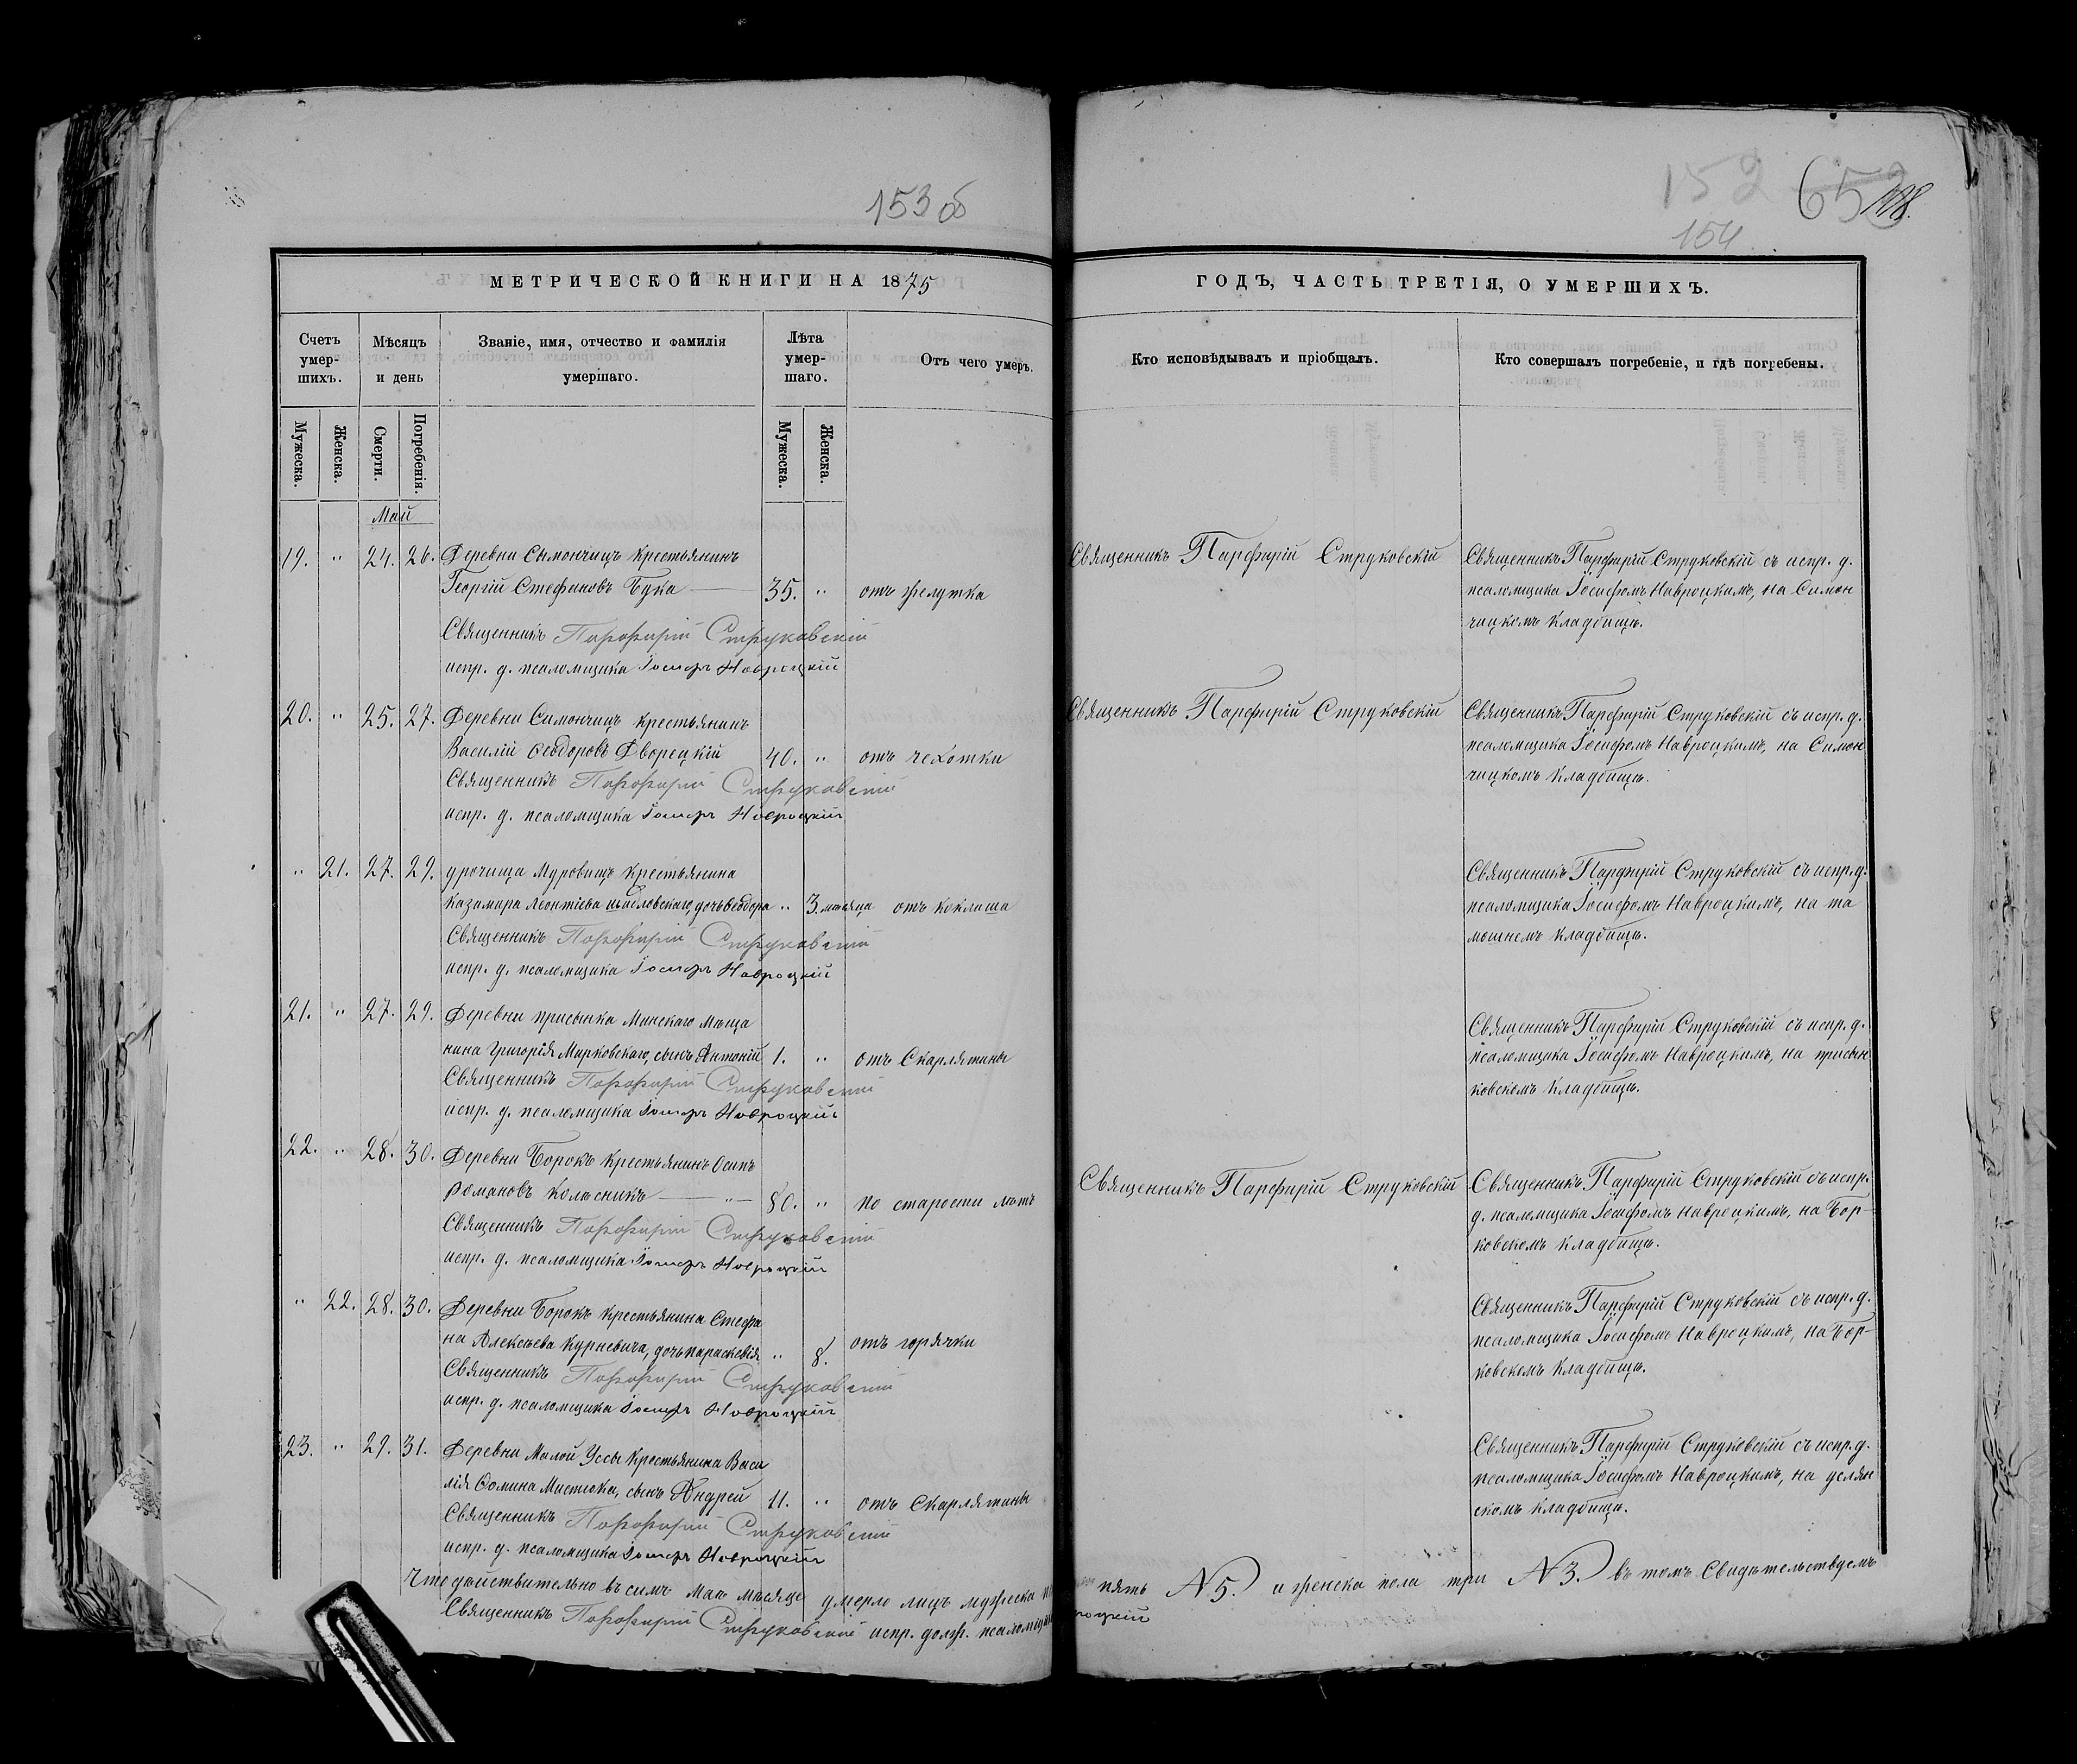 153 об
152
652
118.
154
МЕТРИЧЕСКОЙ КНИГИ НА 1875
ГОДЪ, ЧАСТЬ ТРЕТІЯ, О УМЕРШИХЪ.
Счетъ умер-шихъ.
Мѣсяцъ и день
Званіе, имя, отчество и фамилія умершаго.
Лѣта умер-шаго.
Отъ чего умеръ.
Кто исповѣдывалъ и пріобщалъ.
Кто совершалъ погребеніе, и гдѣ погребены.
Мужеска.
Женска.
Смерти.
Погребенія.
Мужеска.
Женска.
Май
19. " 24. 26. Деревни Сымончицъ крестьянинъ
Георгій Стефановъ Бука — 35. " отъ желутка
Священникъ Порфирій Струковскій
испр. д. псаломщика Іосифъ Навроцкій
Священникъ Парфирій Струковскій
Священникъ Парфирій Струковскій съ испр. д.
псаломщика Іосифомъ Навроцкимъ, на Симон
чицкомъ кладбищѣ.
20. " 25. 27. Деревни Симончицъ крестьянинъ
Василій Ѳеодоровъ Дворецкій 40. " отъ чехотки
Священникъ Порфирій Струковскій
испр. д. псаломщика Іосифъ Навроцкій
Священникъ Парфирій Струковскій
Священникъ Парфирій Струковскій съ испр. д.
псаломщика Іосифомъ Навроцкимъ, на Симон
чицкомъ кладбищѣ.
" 21. 27. 29. урочища Муровищъ крестьянина
Казимира Леонтіева дочь Ѳеодора " 3. мѣсяца отъ коклюша
Священникъ Порфирій Струковскій
испр. д. псаломщика Іосифъ Навроцкій
Священникъ Парфирій Струковскій съ испр. д.
псаломщика Іосифомъ Навроцкимъ, на та
мошнемъ кладбищѣ.
21. " 27. 29. Деревни присынка Минскаго мѣща
нина Григорія Марковскаго, сынъ Антоній 1. " отъ Скарлятины
Священникъ Порфирій Струковскій
испр. д. псаломщика Іосифъ Навроцкій
Священникъ Парфирій Струковскій съ испр. д.
псаломщика Іосифомъ Навроцкимъ, на присын
ковскомъ кладбищѣ.
22. " 28. 30. Деревни Борокъ крестьянинъ Осипъ
Романовъ Колесникъ — " — 80. " по старости лѣтъ
Священникъ Порфирій Струковскій
испр. д. псаломщика Іосифъ Навроцкій
Священникъ Парфирій Струковскій
Священникъ Парфирій Струковскій съ испр.
д. псаломщика Іосифомъ Навроцкимъ, на Бор-
ковскомъ кладбищѣ.
" 22. 28. 30. Деревни Борокъ крестьянина Стефа
на Алексѣева Курневича, дочь Параскевія " 8. отъ горячки
Священникъ Порфирій Струковскій
испр. д. псаломщика Іосифъ Навроцкій
Священникъ Парфирій Струковскій съ испр. д.
псаломщика Іосифомъ Навроцкимъ, на Бор-
ковскомъ кладбищѣ.
23. " 29. 31. Деревни Малой Уссы Крестьянина Васи
лія Ѳомина Мистюка, сынъ Андрей 11. " отъ Скарлятины
Священникъ Порфирій Струковскій
испр. д. псаломщика Іосифъ Навроцкій
Священникъ Парфирій Струковскій съ испр. д.
псаломщика Іосифомъ Навроцкимъ, на услян
скомъ кладбищѣ.
Что дѣйствительно въ семъ маѣ мѣсяце умерло лицъ мужеска пять №5. и женска пола три №3. въ томъ Свидѣтельствуемъ
Священникъ Порфирій Струковскій испр. долж. псаломщика
роцкій